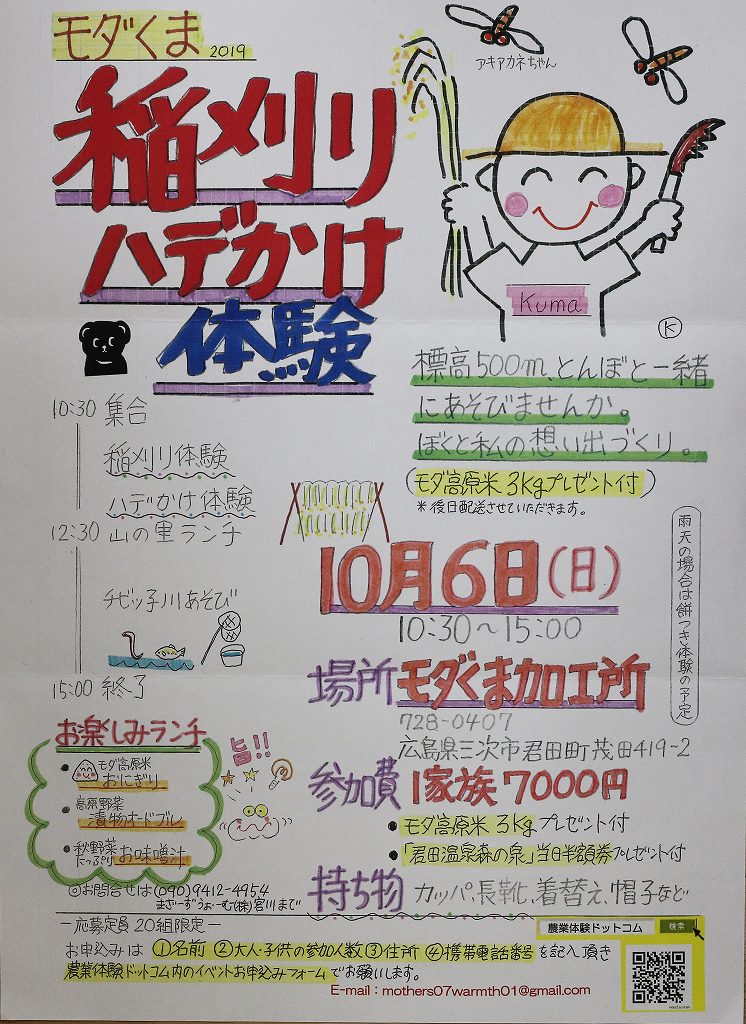 モダくま 2019
アキアカネちゃん
稲刈り
ハデかけ
体験
Kuma
K
標高500m、とんぼと一緒
にあそびませんか。
ぼくと私の想い出づくり。
(モダ高原米3kgプレゼント付)
*後日配送させていただきます。
10:30 集合
稲刈り体験
ハデかけ体験
12:30 山の里ランチ
チビッ子川あそび
15:00 終了
10月6日(日)
10:30〜15:00
雨天の場合は餅つき体験の予定
場所 モダくま加工所
728-0407
広島県三次市君田町茂田419-2
参加費 1家族7000円
●モダ高原米3kgプレゼント付
●「君田温泉森の泉」当日半額券プレゼント付
持ち物 カッパ、長靴、着替え、帽子など
お楽しみランチ
旨!!
●モダ高原米
おにぎり
●高原野菜
漬物オードブル
●秋野菜
たっぷり お味噌汁
◎お問合せは(090)9412-4954
まざーずうぉーむ(株)宮川まで
―応募定員20組限定―
お申込みは ①名前 ②大人・子供の参加人数 ③住所 ④携帯電話番号 を記入頂き
農業体験ドットコム内のイベントお申込みフォームでお願いします。
E-mail:mothers07warmth01@gmail.com
農業体験ドットコム 検索